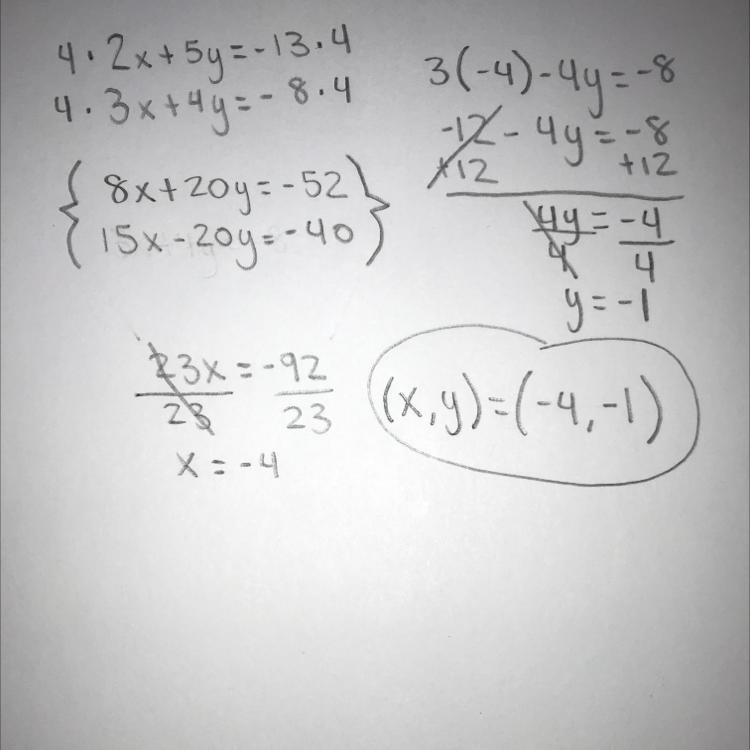 4 · 2x + 5y = -13 · 4
4 · 3x + 4y = - 8 · 4
{ 8x + 20y = -52 }
{ 15x - 20y = -40 }
23x = -92
23 23
x = -4
3(-4) - 4y = -8
-12 - 4y = -8
+12 +12
4y = -4
4 4
y = -1
(x,y) = (-4, -1)